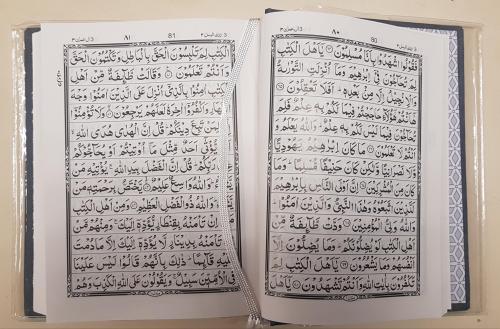 ٨٠ 80
فَقُوْلُوا اشْهَدُوْا بِاَنَّا مُسْلِمُوْنَ ۝ يٰۤاَهْلَ الْكِتٰبِ
لِمَ تُحَآجُّوْنَ فِيْۤ اِبْرٰهِيْمَ وَمَاۤ اُنْزِلَتِ التَّوْرٰىةُ
وَالْاِنْجِيْلُ اِلَّا مِنْۢ بَعْدِهٖ ؕ اَفَلَا تَعْقِلُوْنَ ۝
هٰۤاَنْتُمْ هٰۤؤُلَآءِ حَاجَجْتُمْ فِيْمَا لَكُمْ بِهٖ عِلْمٌ فَلِمَ
تُحَآجُّوْنَ فِيْمَا لَيْسَ لَكُمْ بِهٖ عِلْمٌ ؕ وَاللّٰهُ يَعْلَمُ وَ
اَنْتُمْ لَا تَعْلَمُوْنَ ۝ مَا كَانَ اِبْرٰهِيْمُ يَهُوْدِيًّا
وَّلَا نَصْرَانِيًّا وَّلٰكِنْ كَانَ حَنِيْفًا مُّسْلِمًا ؕ وَمَا
كَانَ مِنَ الْمُشْرِكِيْنَ ۝ اِنَّ اَوْلَى النَّاسِ بِاِبْرٰهِيْمَ
لَلَّذِيْنَ اتَّبَعُوْهُ وَهٰذَا النَّبِيُّ وَالَّذِيْنَ اٰمَنُوْا ؕ
وَاللّٰهُ وَلِيُّ الْمُؤْمِنِيْنَ ۝ وَدَّتْ طَّآئِفَةٌ مِّنْ
اَهْلِ الْكِتٰبِ لَوْ يُضِلُّوْنَكُمْ ؕ وَمَا يُضِلُّوْنَ اِلَّاۤ
اَنْفُسَهُمْ وَمَا يَشْعُرُوْنَ ۝ يٰۤاَهْلَ الْكِتٰبِ لِمَ
تَكْفُرُوْنَ بِاٰيٰتِ اللّٰهِ وَاَنْتُمْ تَشْهَدُوْنَ ۝ يٰۤاَهْلَ
٨١ 81
الْكِتٰبِ لِمَ تَلْبِسُوْنَ الْحَقَّ بِالْبَاطِلِ وَتَكْتُمُوْنَ الْحَقَّ
وَاَنْتُمْ تَعْلَمُوْنَ ۝ وَقَالَتْ طَّآئِفَةٌ مِّنْ اَهْلِ
الْكِتٰبِ اٰمِنُوْا بِالَّذِيْۤ اُنْزِلَ عَلَى الَّذِيْنَ اٰمَنُوْا وَجْهَ
النَّهَارِ وَاكْفُرُوْۤا اٰخِرَهٗ لَعَلَّهُمْ يَرْجِعُوْنَ ۝ وَلَا تُؤْمِنُوْۤا
اِلَّا لِمَنْ تَبِعَ دِيْنَكُمْ ؕ قُلْ اِنَّ الْهُدٰى هُدَى اللّٰهِ ۙ
اَنْ يُّؤْتٰۤى اَحَدٌ مِّثْلَ مَاۤ اُوْتِيْتُمْ اَوْ يُحَآجُّوْكُمْ
عِنْدَ رَبِّكُمْ ؕ قُلْ اِنَّ الْفَضْلَ بِيَدِ اللّٰهِ ۚ يُؤْتِيْهِ مَنْ
يَّشَآءُ ؕ وَاللّٰهُ وَاسِعٌ عَلِيْمٌ ۝ يَّخْتَصُّ بِرَحْمَتِهٖ مَنْ
يَّشَآءُ ؕ وَاللّٰهُ ذُو الْفَضْلِ الْعَظِيْمِ ۝ وَمِنْ اَهْلِ الْكِتٰبِ
مَنْ اِنْ تَاْمَنْهُ بِقِنْطَارٍ يُّؤَدِّهٖۤ اِلَيْكَ ۚ وَمِنْهُمْ مَّنْ
اِنْ تَاْمَنْهُ بِدِيْنَارٍ لَّا يُؤَدِّهٖۤ اِلَيْكَ اِلَّا مَا دُمْتَ
عَلَيْهِ قَآئِمًا ؕ ذٰلِكَ بِاَنَّهُمْ قَالُوْا لَيْسَ عَلَيْنَا
فِى الْاُمِّيّٖنَ سَبِيْلٌ ۚ وَيَقُوْلُوْنَ عَلَى اللّٰهِ الْكَذِبَ وَهُمْ